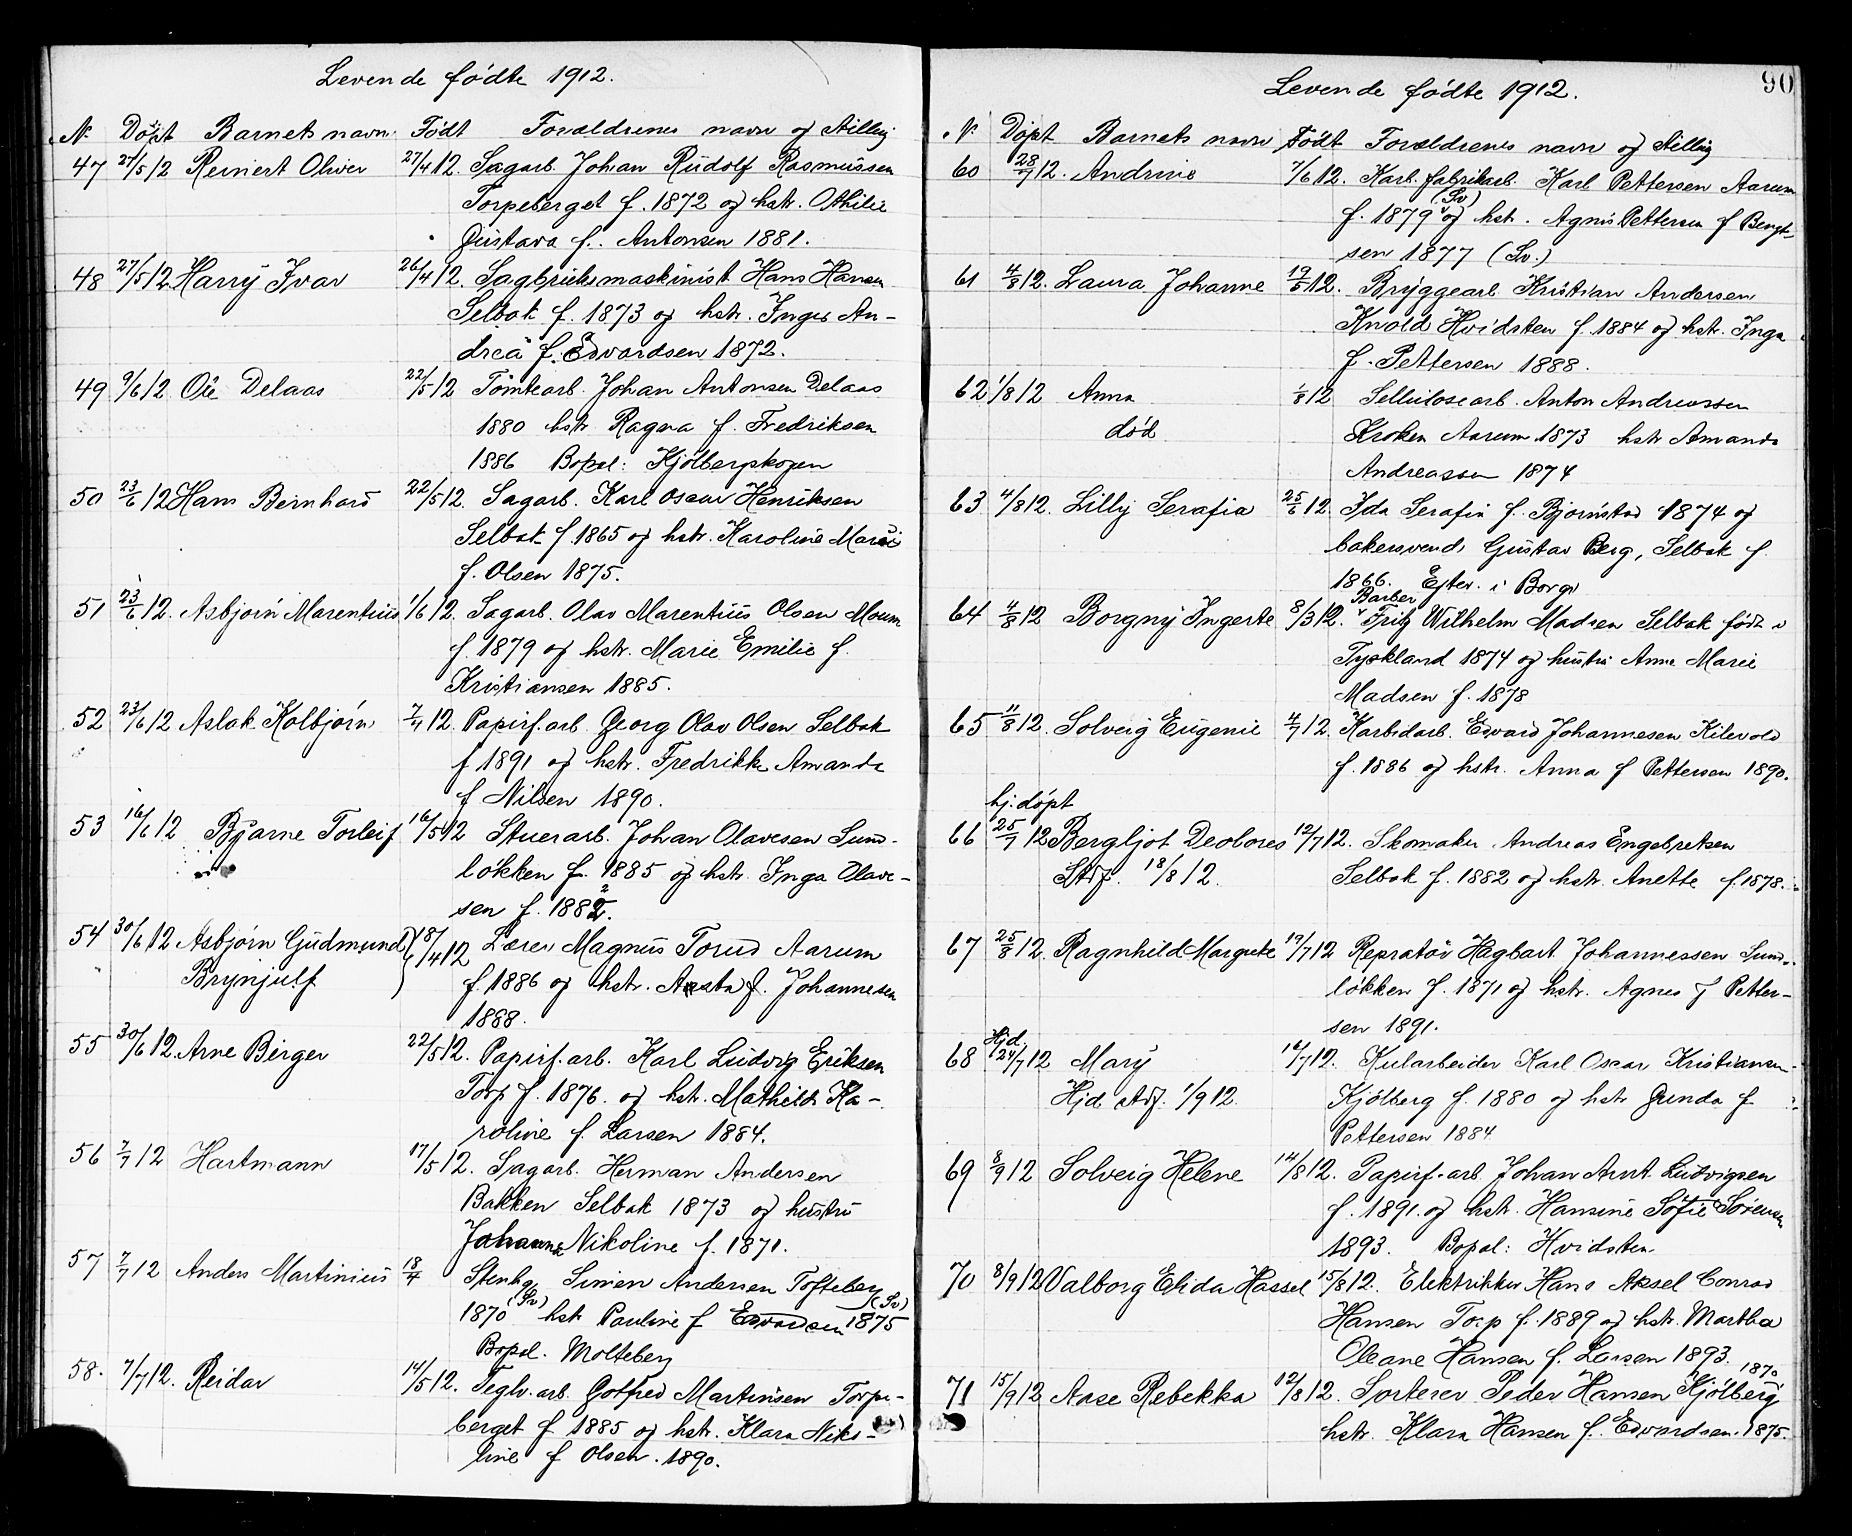 Levende födte 1912.
N. Döpt Barnets navn. Født Forældrenes navn og stilling
47 27/5 12 Reinert Oliver 27/4 12. Sagarb. Johan Rudolf Rasmussen
Torpeberget f. 1872 og hstr. Othilie
Gustava f. Antonsen 1881.
48 27/5 12 Harry Ivar 26/4 12. Sagbruksmaskinist Hans Hansen
Selbak f. 1873 og hstr. Inger An-
drea f. Edvardsen 1872.
49 9/6 12 Ole Delaas 22/5 12 Tömtearb. Johan Antonsen Delaas
1880 hstr Ragna f. Fredriksen
1886 Bopæl: Kjölbergskogen
50 23/6 12 Hans Bernhard 22/5 12. Sagarb. Karl Oscar Henriksen
Selbak f. 1865 og hstr. Karoline Marie
f. Olsen 1875.
51 23/6 12. Asbjörn Marentius 1/6 12. Sagarb. Olav Marentius Olsen Moum
f. 1879 og hstr. Marie Emilie f.
Kristiansen 1885.
52 23/6 12 Aslak Kolbjörn 7/4 12. Papirf.arb. Georg Olav Olsen Selbak
f 1891 og hstr. Fredrikke Amanda
f Nilsen 1890.
53 16/6 12 Bjarne Torleif 16/5 12 Stuerarb. Johan Olavesen Sund-
lökken f. 1885 og hstr. Inga Olave-
sen f. 1882.
54 30/6 12 Asbjørn Gudmund 18/4 12 Lærer Magnus Torud Aarum
Brynjulf f. 1886 og hstr. Aasta f. Johannesen
1888.
55 30/6 12. Arne Birger 22/5 12. Papirf.arb. Karl Ludvig Eriksen
Torp f. 1876. og hstr. Mathilde Ka-
roline f. Larsen 1884.
56 7/7 12 Hartmann 17/5 12. Sagarb. Herman Andersen
Bakken Selbak 1873 og hustru
Johanne Nikoline f. 1871.
57 7/7 12 Anders Martinius 18/4 Stenhg Simen Andersen Tofteberg
1870 (Sv) hstr Pauline f Edvardsen 1875 (Sv)
Bopæl. Molteberg
58. 7/7 12. Reidar 14/5 12. Teglv.arb. Gotfred Martinsen Torpe-
berget f 1885 og hstr. Klara Niko-
line f Olsen. 1890.
90
Levende födte 1912.
N. Döpt Barnets navn Födt Forældrenes navn og stilling
60 28/7 12. Andrine 7/6 12. Karb. fabrikarb. Karl Pettersen Aarum
f. 1879 (Sv) og hstr. Agnes Pettersen f Bengt-
sen 1877 (Sv.)
61 4/8 12. Laura Johanne 19/5 12. Bryggearb Kristian Andersen
Knold Hvidsten f. 1884 og hstr. Inga
f. Pettersen 1888.
62 1/8 12 Anna 1/8 12 Sellulosearb. Anton Andreassen
död Kroken Aarum 1873 hstr Amanda
Andreassen 1874
63 4/8 12. Lilly Serafia 25/6 12 Ida Serafia f. Bjørnstad 1874 og
bakersvend Gustav Berg, Selbak f.
1866. Efter. i Borge
64 4/8 12 Borgny Ingerte 8/3 12. Barber Fritz Wilhelm Madsen Selbak födt i
Tyskland 1874 og hustru Anna Marie
Madsen f. 1878
65 11/8 12 Solveig Eugenie 4/7 12. Karbidarb. Edvard Johannesen Kilevold
f. 1886 og hstr. Anna f Pettersen 1890.
hj. döpt
66 25/7 12 Bergljot Deolores 12/7 12. Skomaker Andreas Engebretsen
Stdf. 18/8 12. Selbak f. 1882 og hstr. Anette f. 1878.
67 25/8 12. Ragnhild Margrete 19/7 12 Repratør Hagbart Johannessen Sund-
lökken f. 1871 og hstr. Agnes f Petter-
sen 1891.
Hjd.
68 24/7 12 Mary 16/7 12. Kularbeider Karl Oscar Kristiansen
Hjd stdf. 1/9 12. Kjölberg f. 1880 og hstr Gunda f
Pettersen 1884
69 8/9 12 Solveig Helene 14/8 12. Papirf.arb Johan Arnt Ludvigsen
f. 1891. og hstr. Hansine Sofie Sörensen
1893. Bopæl: Hvidsten
70 8/9 12 Valborg Elida Hassel 15/8 12. Elektriker Hans Aksel Conrad
Hansen Torp f. 1889 og hstr. Martha
Oleane Hansen f. Larsen 1893.
71 15/9 12 Aase Rebekka 12/8 12. Sorterer Peder Hansen Kjölberg 1870
hstr. Klara Hansen f. Edvardsen. 1875.